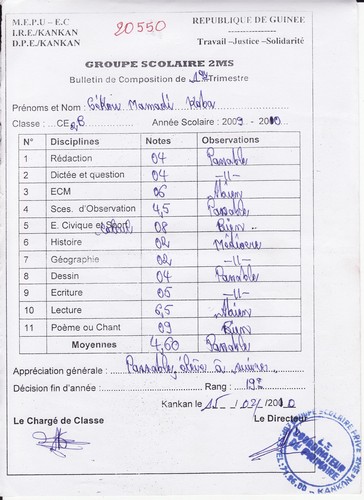 M.E.P.U – E.C 20550 REPUBLIQUE DE GUINEE
I.R.E./KANKAN
D.P.E./KANKAN Travail –Justice –Solidarité
GROUPE SCOLAIRE 2MS
Bulletin de Composition de 1er Trimestre
Prénoms et Nom : Sékou Mamadi Kaba
Classe : ...CE2 B Année Scolaire : 2009 - 2010
N° Disciplines Notes Observations
1 Rédaction 04 Passable
2 Dictée et question 04 -II-
3 ECM 06 Moyen
4 Sces. d'Observation 4,5 Passable
5 E. Civique et 08 Bien
6 Histoire 02 Médiocre
7 Géographie 02 -II-
8 Dessin 04 Passable
9 Ecriture 05 -II-
10 Lecture 6,5 Moyen
11 Poème ou Chant 09 Bien
Moyennes 4,60 Passable
Appréciation générale : Passable, élève à suivre
Décision fin d'année : Rang : 19e
Kankan le 15 / 03 / 2010
Le Chargé de Classe Le Directeur
LE COORDINATEUR DU PRIMAIRE